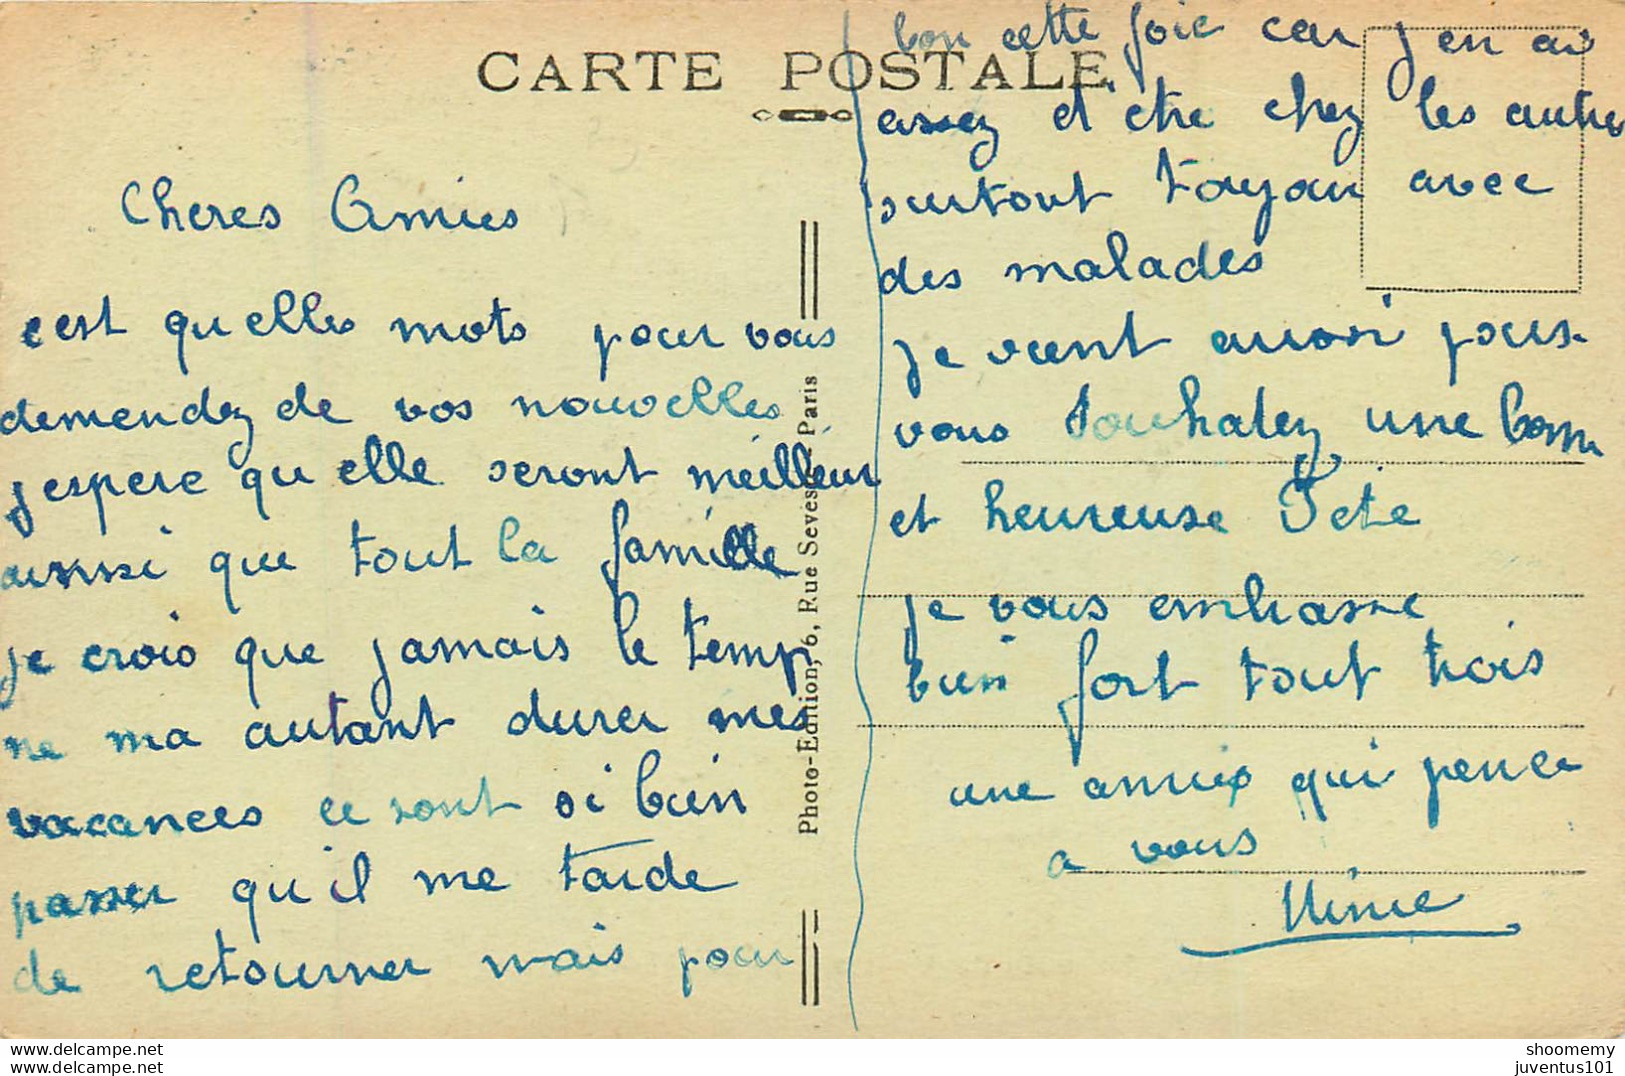 CARTE POSTALE
Cheres Amies
c'est qu elles mots pour vous
demendez de vos nouvelles
j espere qu elle seront meilleur
aussi que tout la famille
je crois que jamais le temp
ne ma autant durer mes
vacances ce sont si bien
passer qu'il me tarde
de retourner mais pour
bon cette fois car j en ai
assez d'etre chez les autres
surtout toujour avec
des malades
je vient aussi pour
vous souhatez une bonne
et heureuse Fete
je vous embrasse
bien fort tout trois
une amie qui pense
a vous
Mimie
Photo-Edition, 6, Rue Seveste, Paris
www.delcampe.net
shoomemy
www.delcampe.net
juventus101